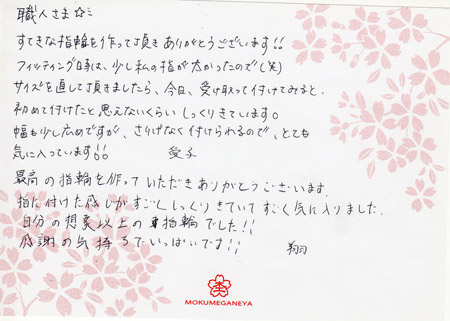 職人さま☆ミ
すてきな指輪を作って頂きありがとうございます!!
フィッティング時は、少し私の指が太かったので(笑)
サイズを直して頂きましたら、今日、受け取って付けてみると、
初めて付けたと思えないくらいしっくりきています。
幅も少し広めですが、さりげなく付けられるので、とても
気に入っています!! 愛子
最高の指輪を作っていただきありがとうございます。
指に付けた感じがすごくしっくりきていてすごく気に入りました。
自分の想像以上の指輪でした!!
感謝の気持ちでいっぱいです!! 翔
MOKUMEGANEYA